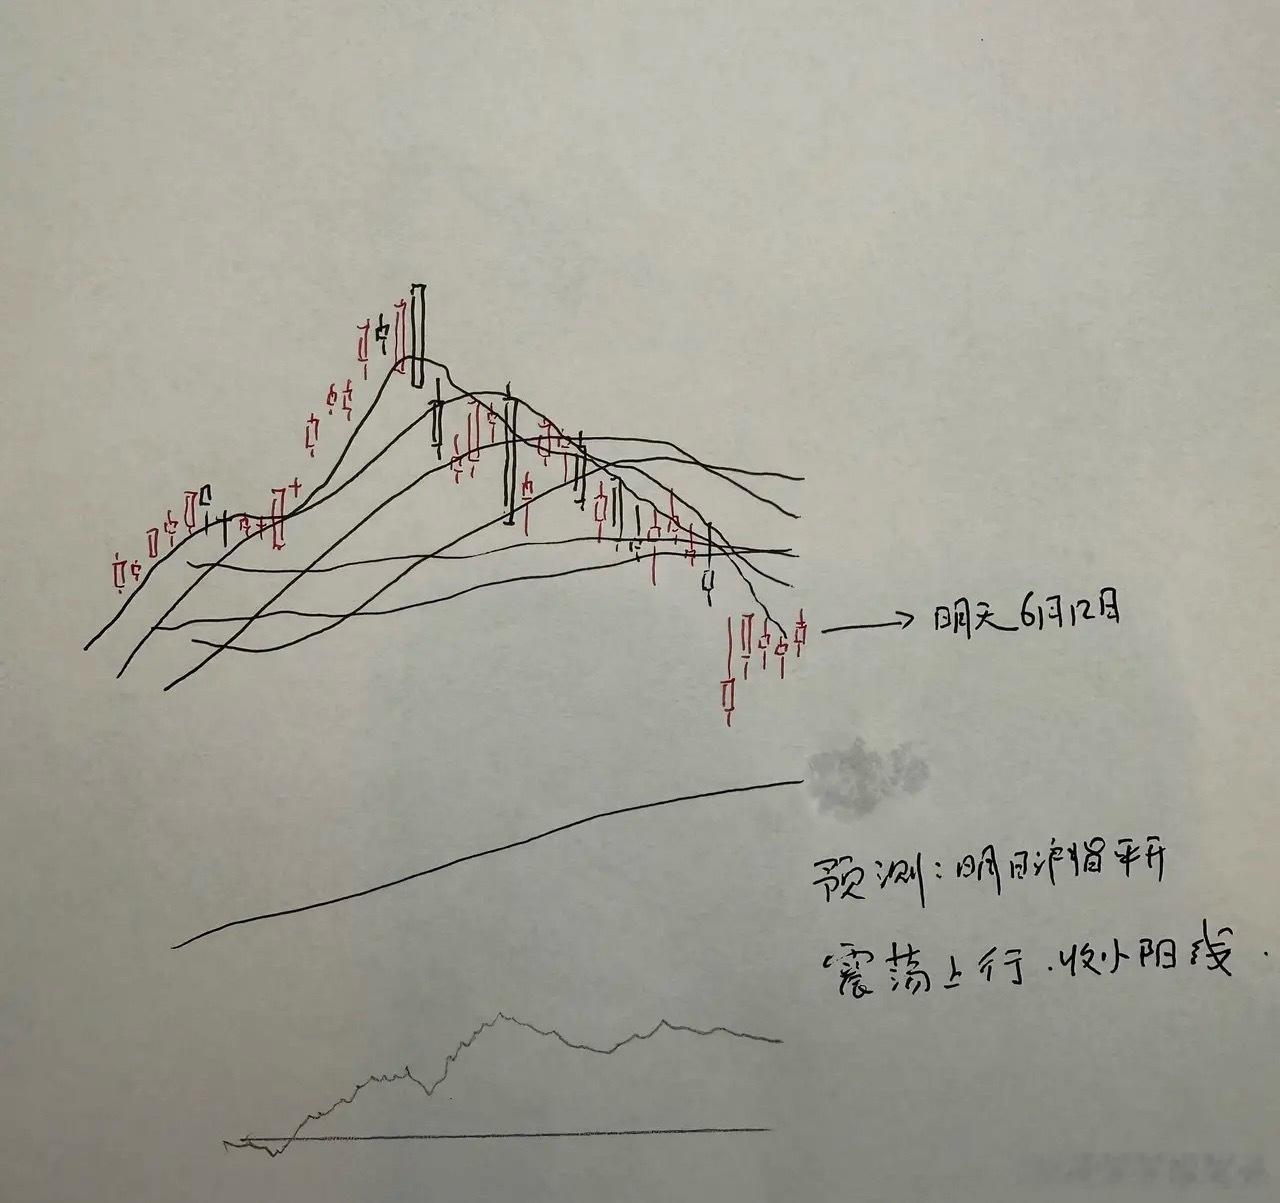 明天6月12日
预测：明日沪指平开
震荡上行.收小阳线.